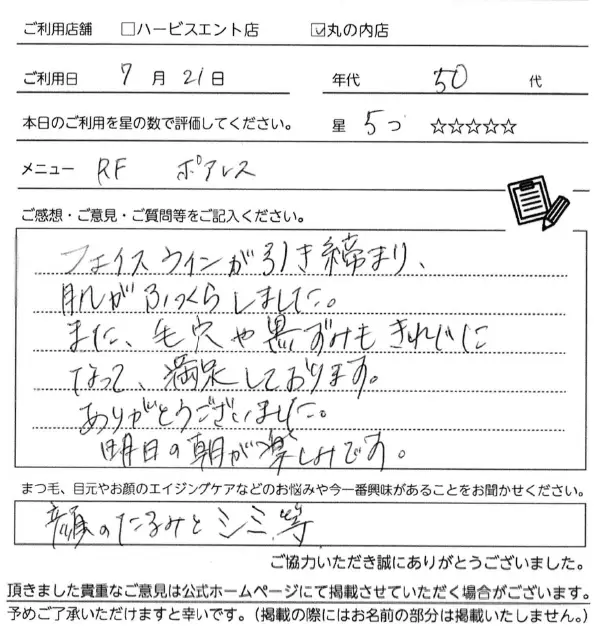 ご利用店舗 □ハービスエント店 ☑丸の内店
ご利用日 7月21日 年代 50代
本日のご利用を星の数で評価してください。 星 5つ ☆☆☆☆☆
メニュー RF ポアレス
ご感想・ご意見・ご質問等をご記入ください。
フェイスラインが引き締まり、
肌がふっくらしました。
また、毛穴や黒ずみもきれいに
なって、満足しております。
ありがとうございました。
明日の朝が楽しみです。
まつ毛、目元やお顔のエイジングケアなどのお悩みや今一番興味があることをお聞かせください。
顔のたるみとシミ等
ご協力いただき誠にありがとうございました。
頂きました貴重なご意見は公式ホームページにて掲載させていただく場合がございます。
予めご了承いただけますと幸いです。（掲載の際にはお名前の部分は掲載いたしません。）